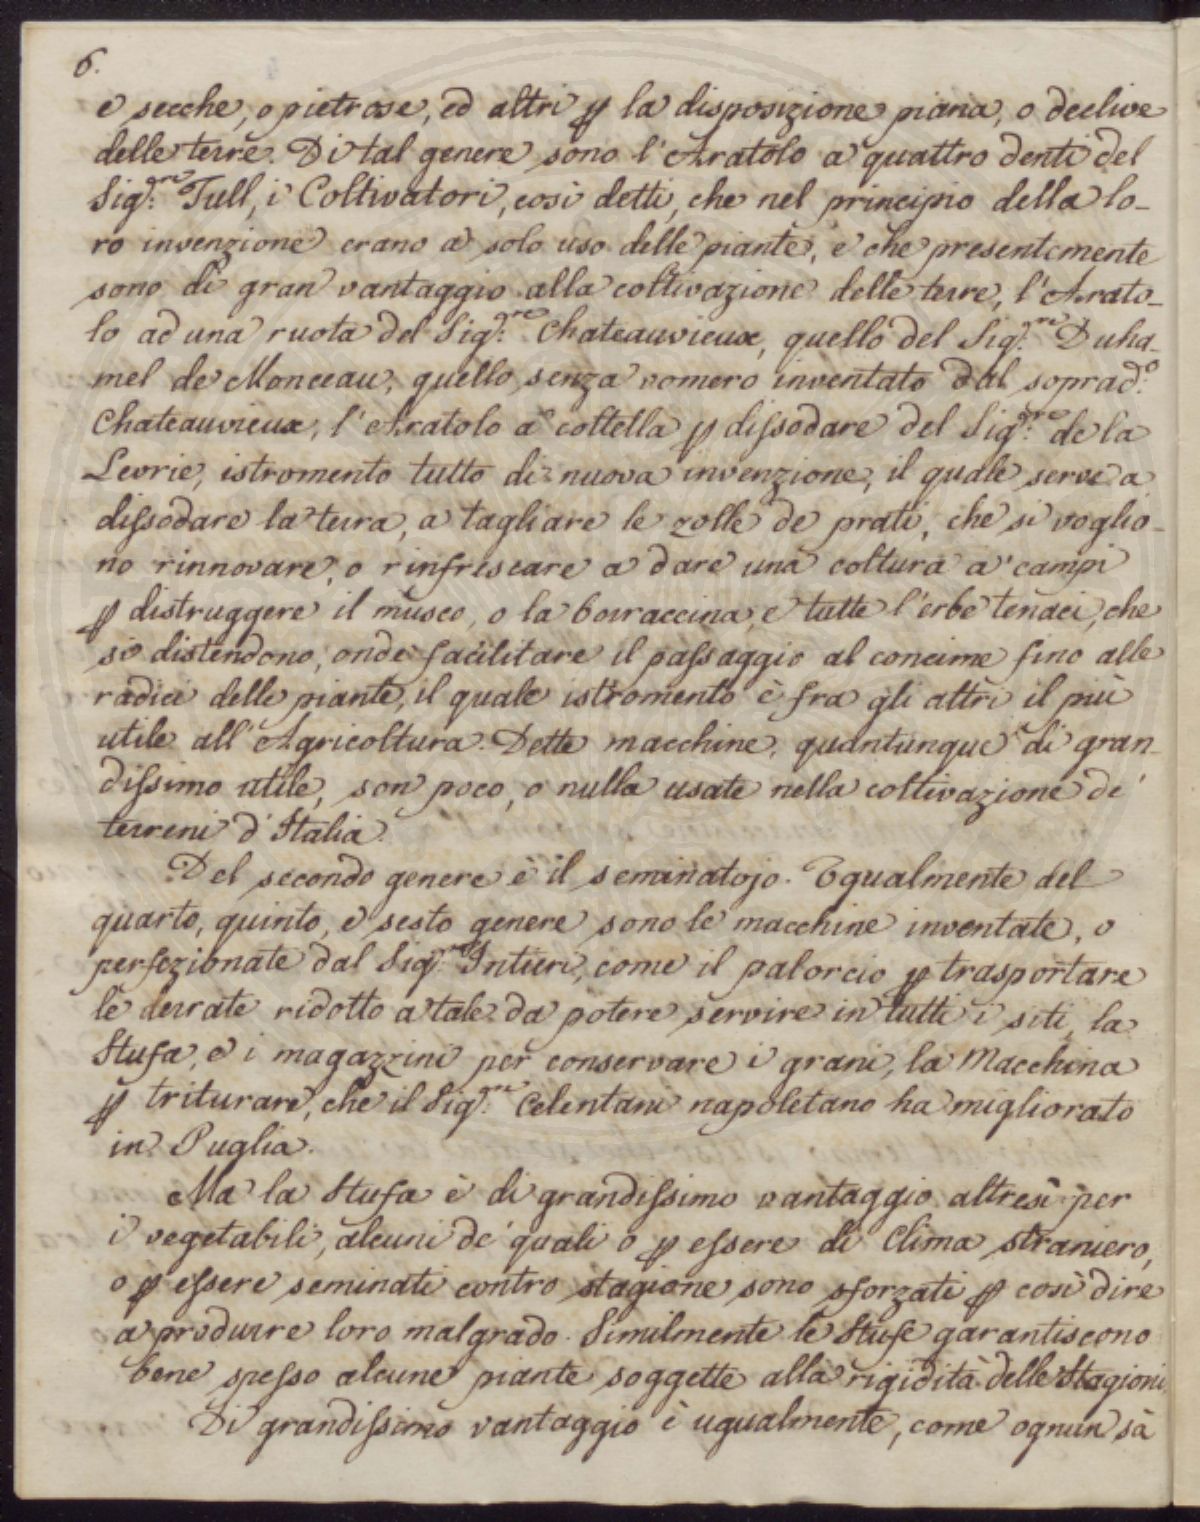 6.
e secche, o pietrose, ed altri ꝑ la disposizione piana, o declive
delle terre. Di tal genere sono l'Aratolo a quattro denti del
Sig.re Tull, i Coltivatori, così detti, che nel principio della lo-
ro invenzione erano a solo uso delle piante, e che presentemente
sono di gran vantaggio alla coltivazione delle terre, l'Arato-
lo ad una ruota del Sig.re Chateauvieux, quello del Sig.re Duha-
mel de Monceau, quello senza vomero inventato dal soprad.o
Chateauvieux, l'Aratolo a coltella ꝑ dissodare del Sig.re de la
Levrie, istromento tutto di nuova invenzione, il quale serve a
dissodare la terra, a tagliare le zolle de prati, che si voglio-
no rinnovare, o rinfrescare a dare una coltura a' campi
ꝑ distruggere il musco, o la borraccina, e tutte l'erbe tenaci, che
si distendono, onde facilitare il passaggio al concime fino alle
radici delle piante, il quale istromento è fra gli altri il più
utile all'Agricoltura. Dette macchine, quantunque di gran-
dissimo utile, son poco, o nulla usate nella coltivazione de'
terreni d'Italia.
Del secondo genere è il seminatojo. Egualmente del
quarto, quinto, e sesto genere sono le macchine inventate, o
perfezionate dal Sig.re Intieri, come il palorcio ꝑ trasportare
le derrate ridotto a tale da potere servire in tutti i siti, la
Stufa, e i magazzini per conservare i grani, la Macchina
ꝑ triturare, che il Sig.re Celentani napoletano ha migliorato
in Puglia.
Ma la Stufa è di grandissimo vantaggio altresì per
i vegetabili, alcuni de' quali o ꝑ essere di Clima straniero,
o ꝑ essere seminati contro stagione sono sforzati ꝑ così dire
a produrre loro malgrado. Similmente le Stufe garantiscono
bene spesso alcune piante soggette alla rigidità delle Stagioni
Di grandissimo vantaggio è ugualmente, come ognun sà